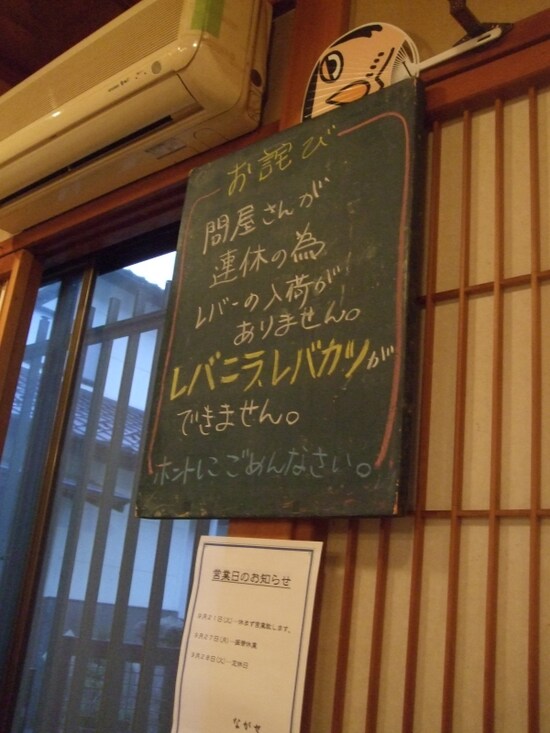 お詫び
問屋さんが
連休の為
レバーの入荷が
ありません。
レバニラ、レバカツが
できません。
ホントにごめんなさい。
営業日のお知らせ
9月21日(火)…休まず営業致します。
9月27日(月)…振替休業
9月28日(火)…定休日